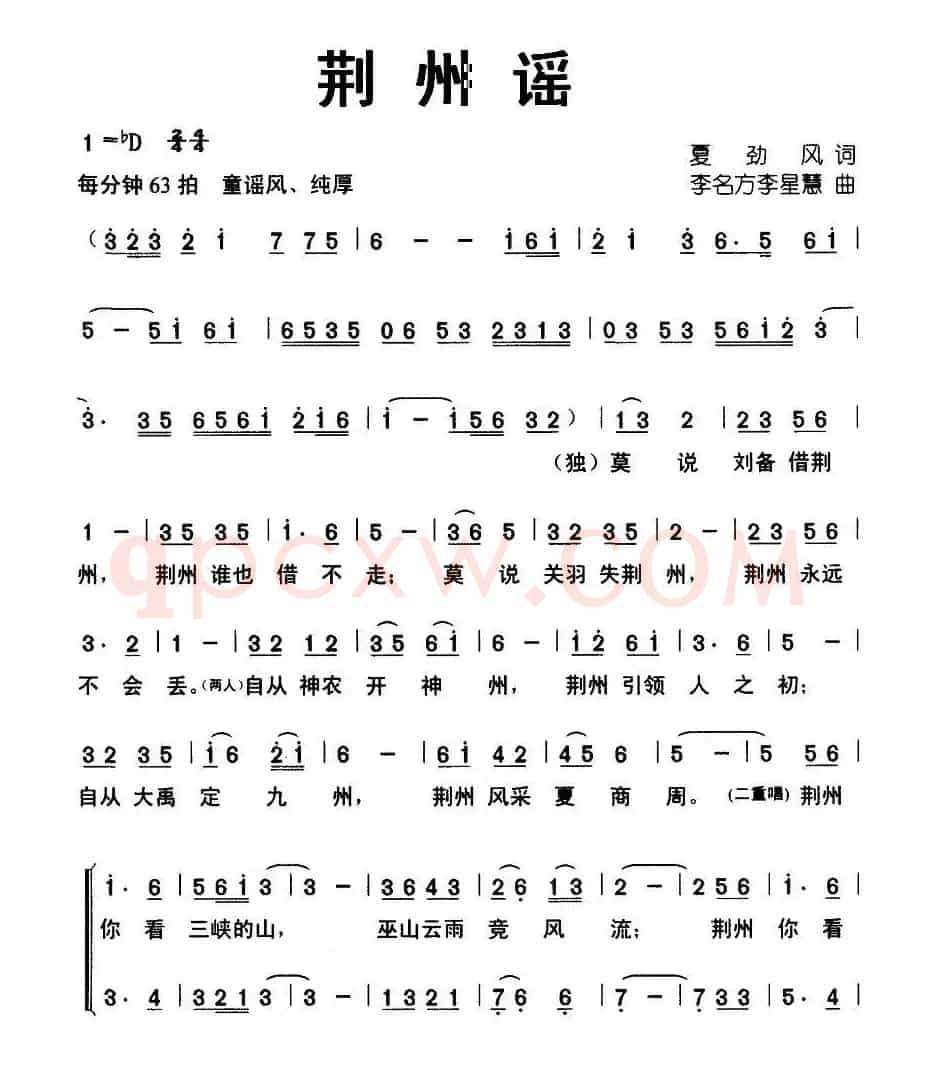 荆州谣
1=♭D 2/4 4/4
夏劲风词
每分钟63拍 童谣风、纯厚
李名方李星慧 曲
(3̇2̇3̇ 2̇ 1̇ 7 75 | 6 - - 1̇61̇ | 2̇ 1̇ 3̇ 6. 5 61̇ |
5 - 51̇ 61̇ | 6535 06 53 2313 | 03 53 561̇2̇ 3̇ |
3̇. 35 6561̇ 2̇1̇6 | 1̇ - 1̇56 32) | 1̇3 2 | 23 56 |
(独)莫 说 刘备 借荆
1 - | 35 35 | 1̇. 6 | 5 - | 36 5 | 32 35 | 2 - | 23 56 |
qpcxw.COM
州, 荆州 谁也 借 不 走; 莫 说 关羽 失荆 州, 荆州 永远
3. 2 | 1 - | 32 12 | 35 61̇ | 5 - | 1̇2̇ 61̇ | 3. 6 | 5 - |
不 会 丢。(两人)自从 神农 开 神 州, 荆州 引领 人 之 初;
32 35 | 1̇6 2̇1̇ | 6 - | 61̇ 42 | 45 6 | 5 - | 5 56 |
自从 大禹 定 九 州, 荆州 风采 夏 商 周。(二重唱)荆州
1̇. 6 | 561̇3 | 3 - | 3643 | 26̣ 1̇3 | 2 - | 256 | 1̇. 6 |
你 看 三峡的山, 巫山云雨 竞 风 流; 荆州 你 看
3. 4 | 3213 | 3 - | 1321 | 7̣6̣ 6̣ | 7̣ - | 7̣33 | 5. 4 |